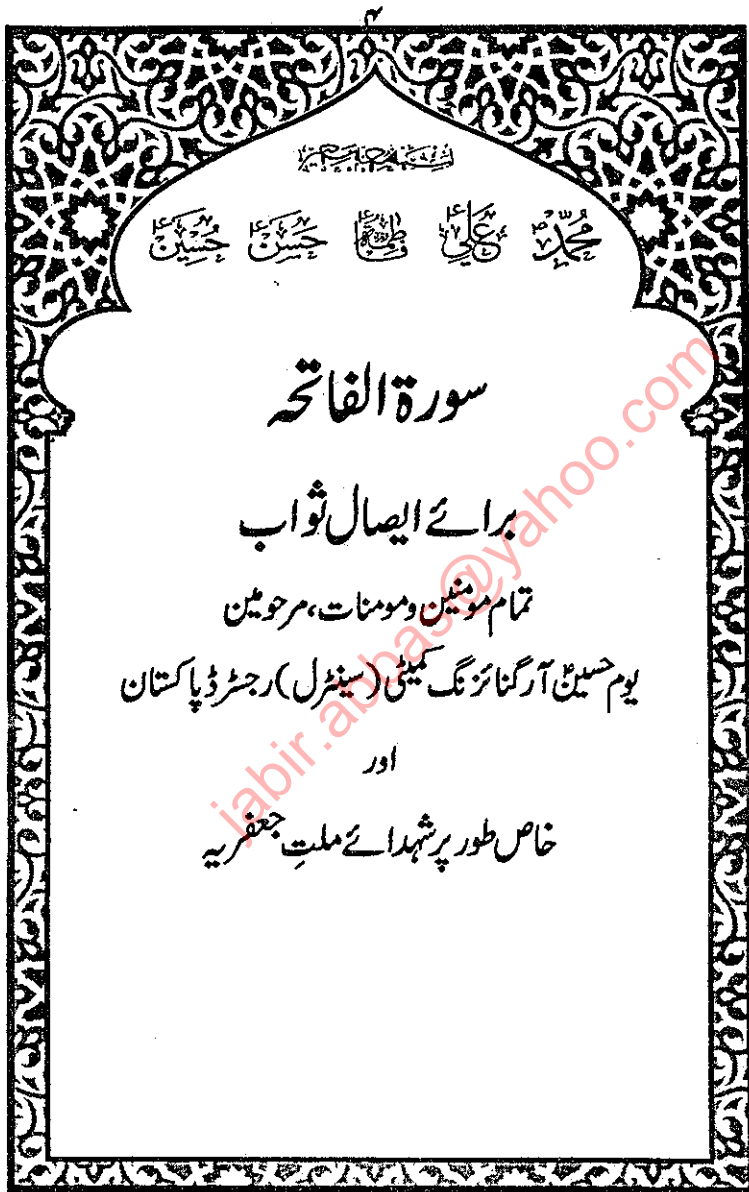 ۴
بسم اللہ الرحمن الرحیم
محمدؐ علیؑ فاطمہؑ حسنؑ حسینؑ
سورۃ الفاتحہ
برائے ایصال ثواب
تمام مومنین ومومنات، مرحومین
یوم حسینؑ آرگنائزنگ کمیٹی (سینٹرل) رجسٹرڈ پاکستان
اور
خاص طور پر شہدائے ملتِ جعفریہ
jabir.abbas@yahoo.com